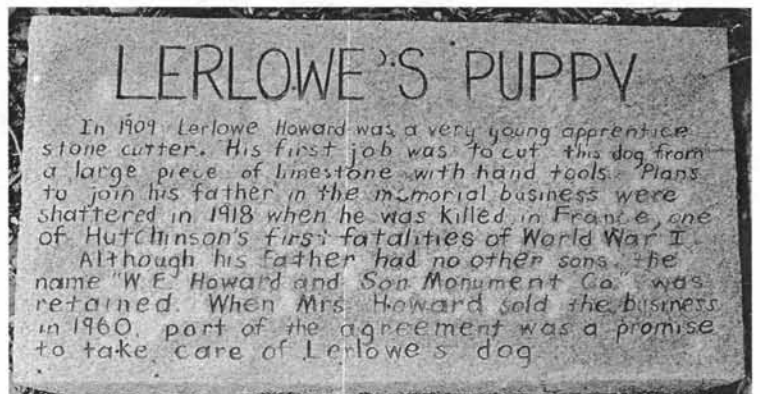 LERLOWE'S PUPPY
In 1909 Lerlowe Howard was a very young apprentice
stone cutter. His first job was to cut this dog from
a large piece of limestone with hand tools. Plans
to join his father in the memorial business were
shattered in 1918 when he was killed in France, one
of Hutchinson's first fatalities of World War I.
Although his father had no other sons, the
name "W.E. Howard and Son Monument Co." was
retained. When Mrs. Howard sold the business
in 1960, part of the agreement was a promise
to take care of Lerlowe's dog